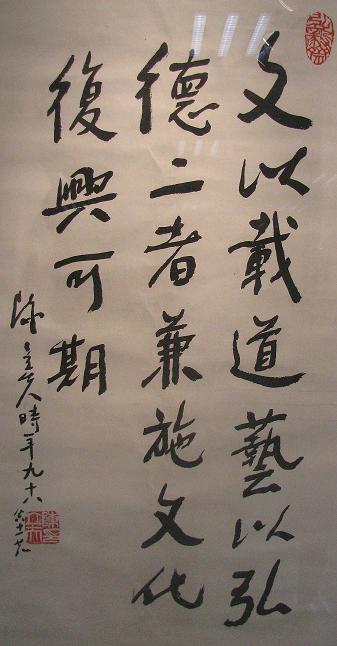 文以載道藝以弘
德二者兼施文化
復興可期
陳立夫時年九十八